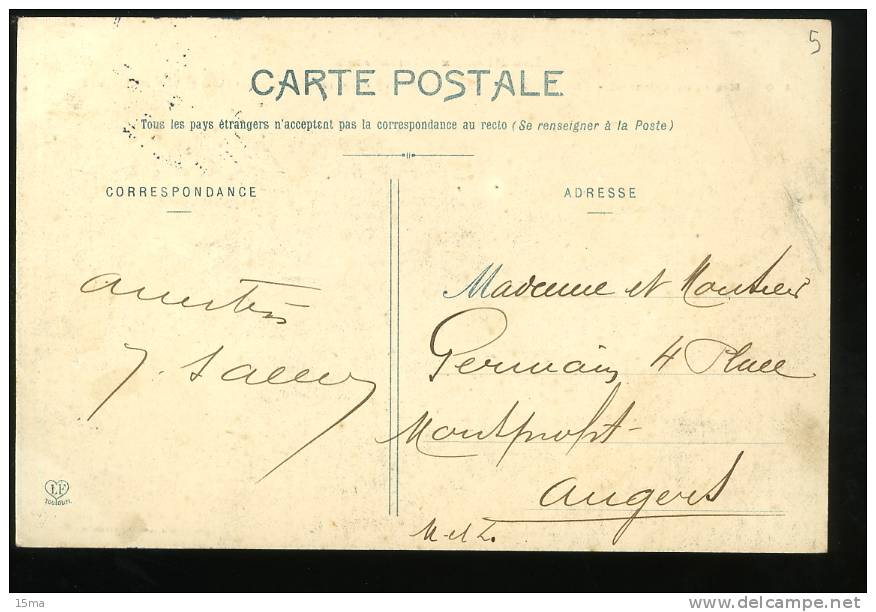 5
CARTE POSTALE
Tous les pays étrangers n'acceptent pas la correspondance au recto (Se renseigner à la Poste)
CORRESPONDANCE
amitiés
J.
ADRESSE
Madame et Monsieur
Germain 4 Place
Montprofit
Angers
M et L.
LF
TOULOUSE
15ma
www.delcampe.net